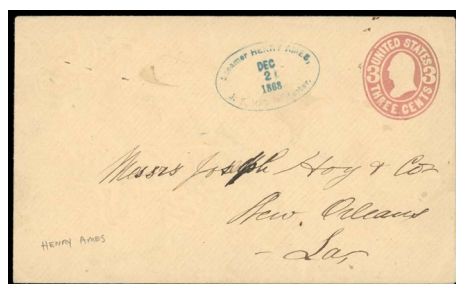 Steamer HENRY AMES,
DEC
21
1868
UNITED STATES
3 3
THREE CENTS
Messrs Joseph Hoy & Co
New Orleans
La,
HENRY AMES